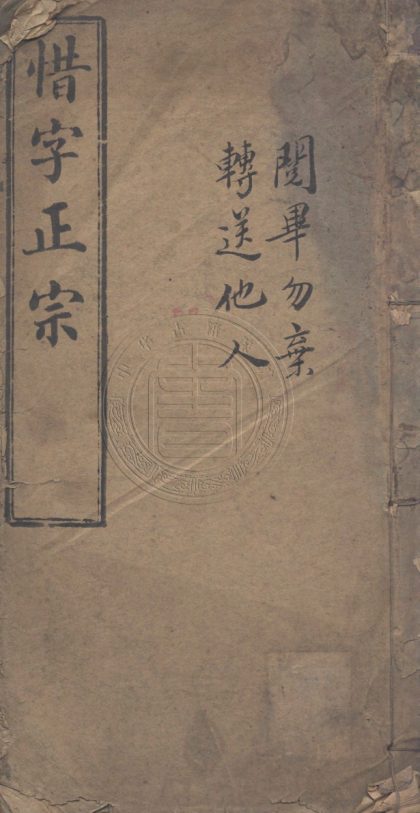 閱畢勿棄
轉送他人
惜字正宗